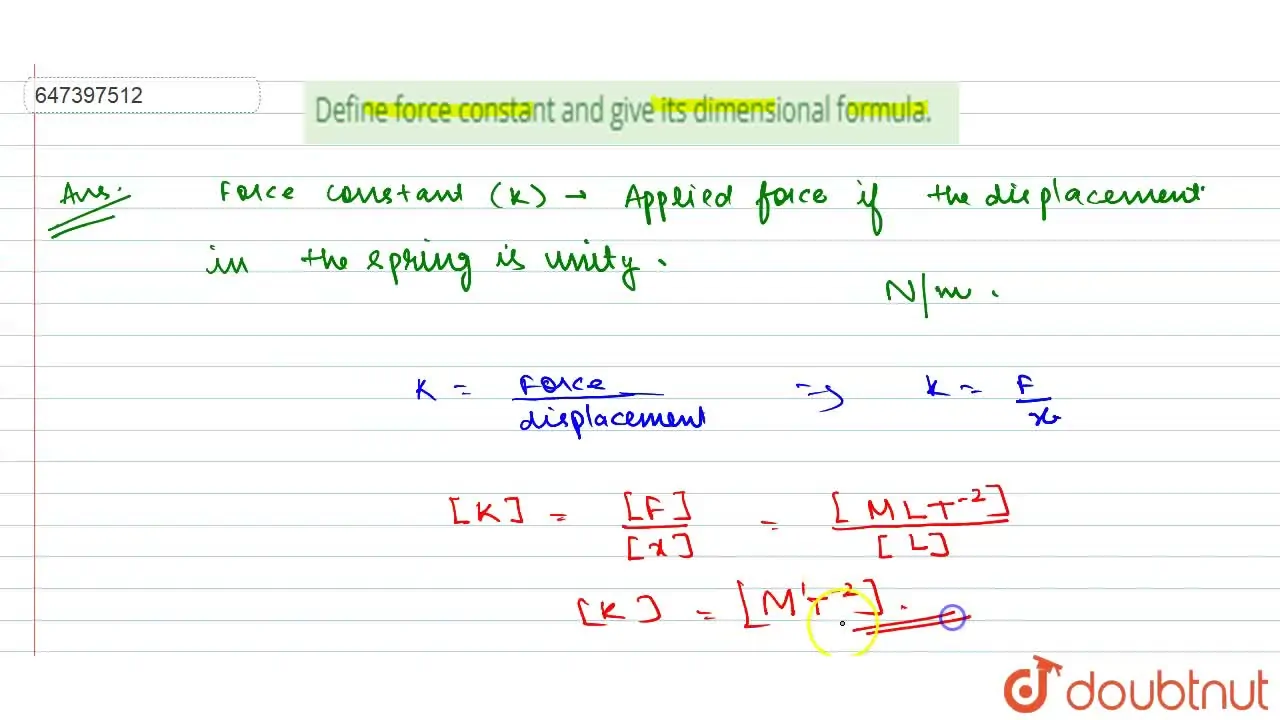 647397512
Define force constant and give its dimensional formula.
Ans. Force constant (K) → Applied force if the displacement
in the spring is unity.
N/m.
K = Force / displacement ⇒ K = F / x
[K] = [F] / [x] = [MLT⁻²] / [L]
[K] = [M¹T⁻²].
doubtnut